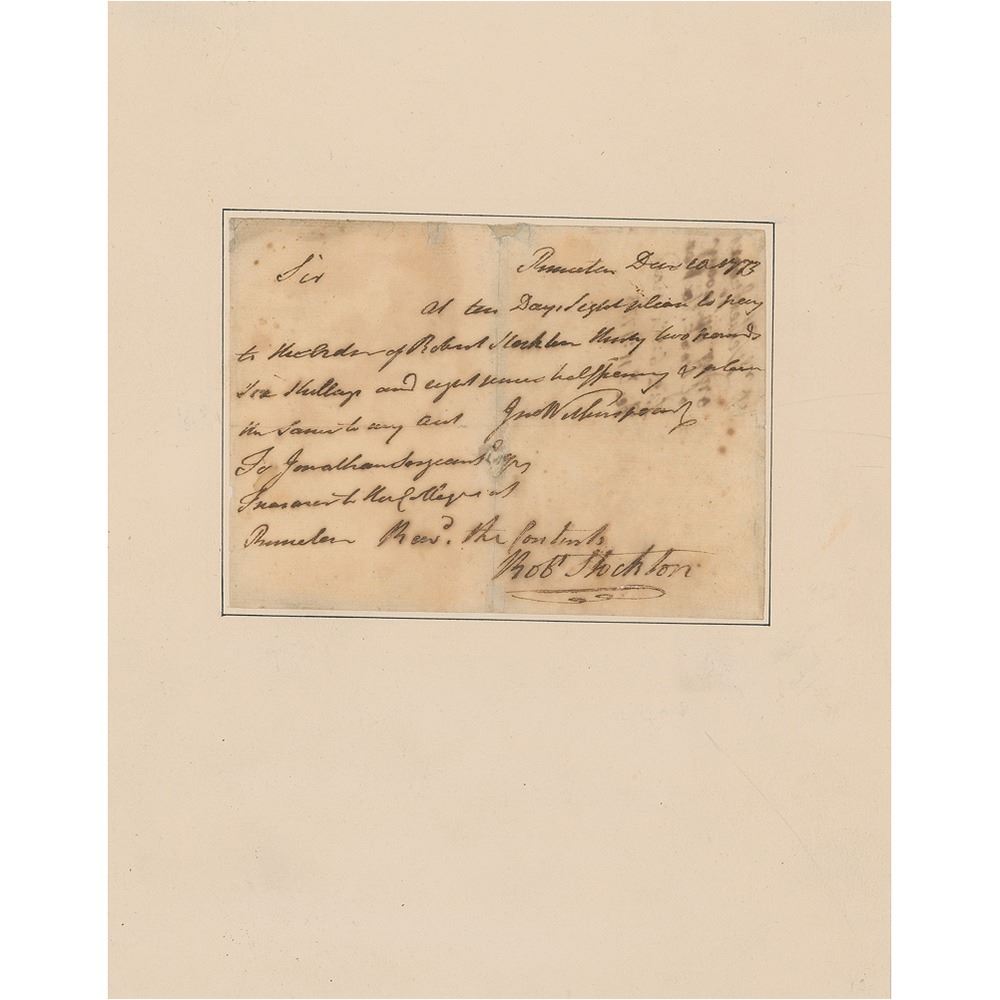 Sir Princeton Decr 10 1773
At ten Days sight please to pay
to the Order of Robert Stockton thirty two pounds
Six Shillings and eight pence halfpenny & place
the same to my acct Jno Witherspoon
To Jonathan Sergeant Esqr
Treasurer to the College at
Princeton Recd. the Contents
Robt Stockton